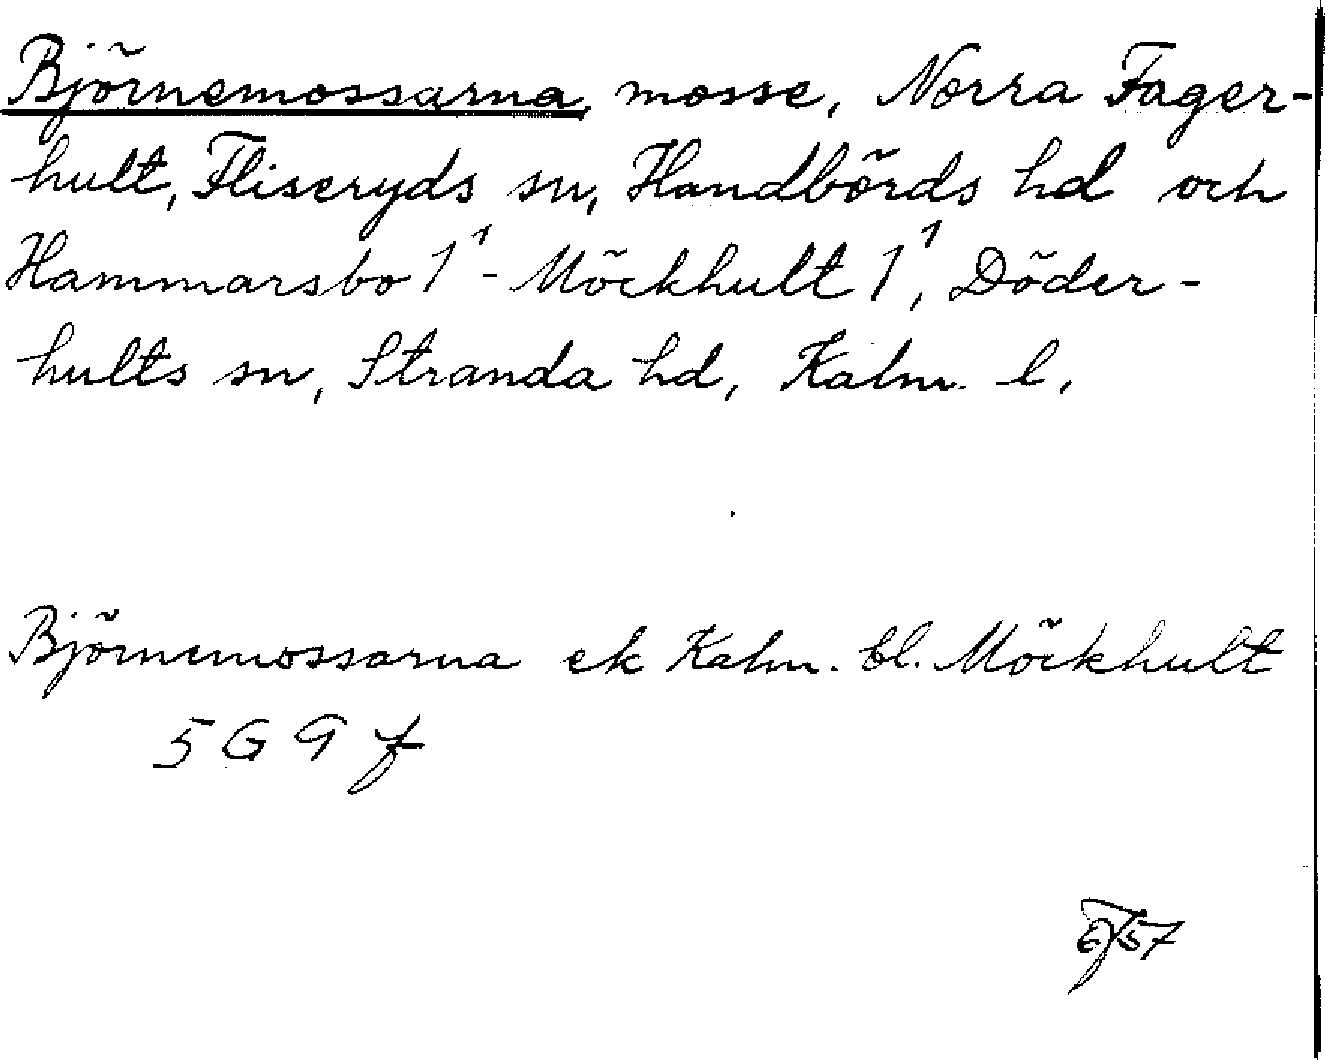 Björnemossarna, mosse, Norra Fager-
hult, Fliseryds sn, Handbörds hd och
Hammarsbo 1¹ - Möckhult 1¹, Döder-
hults sn, Stranda hd, Kalm. l.
Björnemossarna ek Kalm. bl. Möckhult
5 G 9 f
57